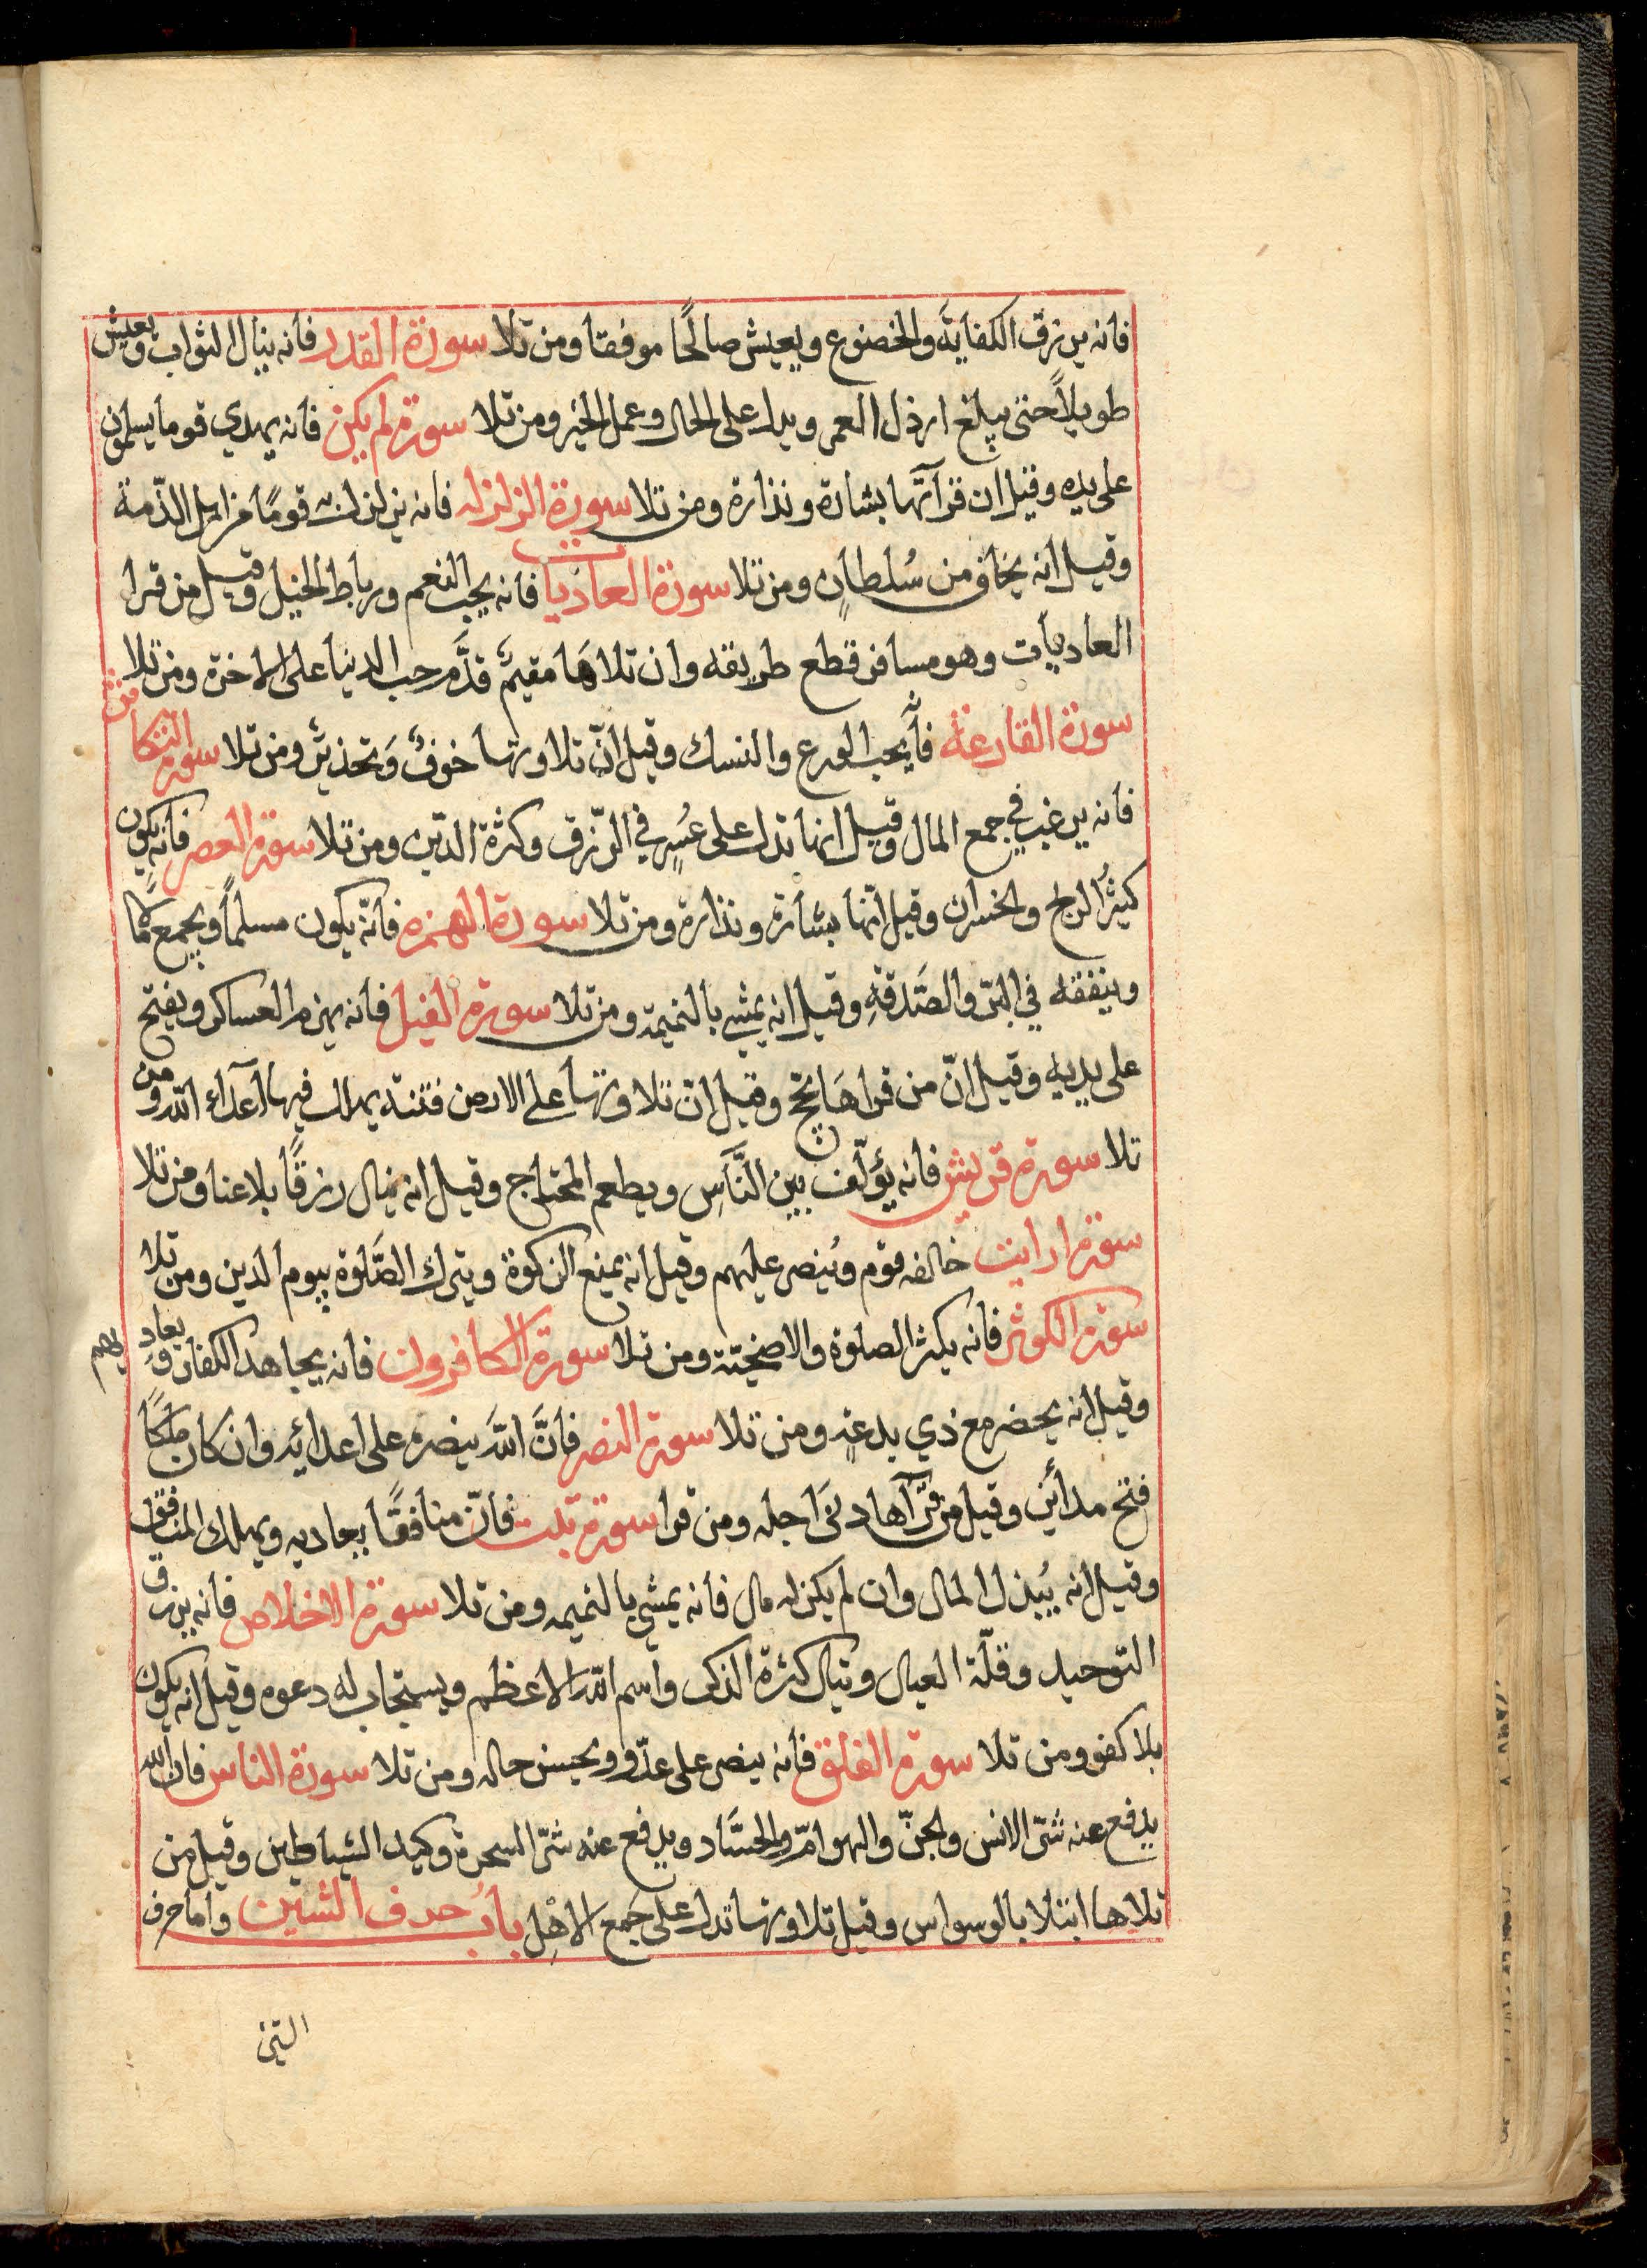 فانه يرزق الكفاية والخضوع ويعيش صالحًا موفقا ومن تلا سورة القدر فانه ينال الثواب ويعيش
طويلاً حتى يبلغ ارذل العمر ويدل على الحال وعمل الخير ومن تلا سورة لم يكن فانه يهدي قوما يسلمون
على يده وقيل ان قرآتها بشارة ونذارة ومن تلا سورة الزلزله فانه يزلزل به قومًا من اهل الذّمة
وقيل انه يخاف من سُلطانٍ ومن تلا سورة العاديات فانه يحب النعم ورباط الخيل وقيل من قرا
العاديات وهو مسافر قطع طريقه وان تلاهَا مقيمٌ قدَّم حب الدنيا على الاخرة ومن تلا
سورة القارعة فأنه يحب الورع والنسك وقيل انّ تلاوتها خوفٌ وَتحذيرٌ ومن تلا سورة التكاثر
فانه يرغب في جمع المال وقيل انها تدل على عُسٍر في الرّزق وكثرة الدّين ومن تلا سورة العصر فانه يكون
كثيرُ الربح والخسران وقيل انّها بشارة ونذارة ومن تلا سورة الهمزه فانّه يكون مسلماً ويجمع كما
وينفقه في البّر والصَّدقةِ وقيل انه يمشي بالنميمة ومن تلا سورة الفيل فانه يهزم العساكر ويفتح
على يديه وقيل انّ من قراهَا يحج وقيل انّ تلاوتها على الارض فتنة يهلك فيها أعدآء الله ومن
تلا سورة قريش فانه يؤلّف بين النَّاسِ ويطعم المحتاج وقيل انه ينال رزقًا بلا عنا ومن تلا
سورة ارايت خالفه قوم ويُنصر عليهم وقيل انه يمنع الزكوة ويترك الصَّلوة بيوم الدين ومن تلا
سورة الكوثر فأنه يكثر الصلوة والاضحيّة ومن تلا سورة الكافرون فانه يجاهد الكفار ويعاديهم
وقيل انه يحضر مع ذي بدعةٍ ومن تلا سورة النصر فأنَّ اللهَ ينصره على اعدائه وان كان ملكًا
فتح مدأئن وقيل من قرآها دنَى اجله ومن قرا سورة تبت فأنّ منافقًا يعاديه ويهلك المنافق
وقيل انه يُبذل المال وان لم يكن له مال فانه يمشي بالنميمه ومن تلا سورة الاخلاص فأنه يرزق
التوحيد وقلّة العيال وينال كثرة الذكر واسم الله الاعظم ويستجاب له دعوه وقيل انه يكون
بلا كفو ومن تلا سورة الفلق فأنه ينصر على عدّو ويحسن حاله ومن تلا سورة الناس فان الله
يدفع عنه شّر الانس والجنّ والهوامّ والحسَّاد ويدفع عنه شّر السحرة وكيد الشياطين وقيل من
تلاها ابتلا بالوسواس وقيل تلاوتها تدل على جَمع الاهْل بابُ حرف الشين واما حرف
الشين